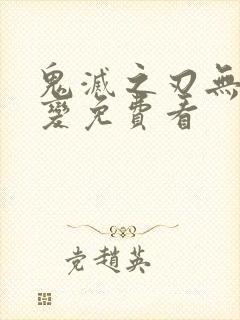 鬼滅之刃無
變免費看
党趙英